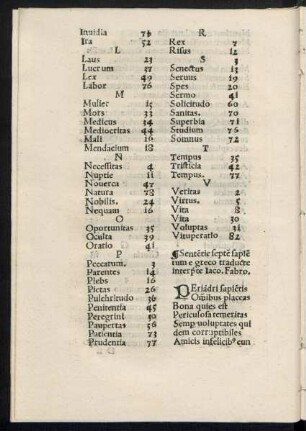 Inuidia 76
Ira 52
L
Laus 23
Lucrum 37
Lex 49
Labor 76
M
Mulier 15
Mors 33
Medicus 14
Mediocritas 44
Mali 16
Mendacium 18
N
Necessitas 4
Nuptie 11
Nouerca 47
Natura 78
Nobilis. 24
Nequam 16
O
Oportunitas 35
Oculta 39
Oratio 41
P
Peccatum. 3
Parentes 14
Plebs 16
Pietas 26
Pulchritudo 36
Penitentia 45
Peregrini 50
Paupertas 56
Patientia 73
Prudentia 77
R
Rex 7
Risus 12
S
Senectus 13
Seruus 19
Spes 20
Sermo 41
Solicitudo 60
Sanitas. 70
Superbia 71
Studium 76
Somnus 72
T
Tempus 35
Tristicia 42
Tempus. 77
V
Veritas 2
Virtus. 5
Vita 8
Vita 30
Voluptas 31
Vituperatio 82
¶Sentētie septē sapiētū
e greco traducte
interp̄te Iaco. Fabro.
Periādri sapiētis
Omībus placeas
Bona quies est
Periculosa temeritas
Semp voluptates qui
dem corruptibiles
Amicis infelicibꝰ eun